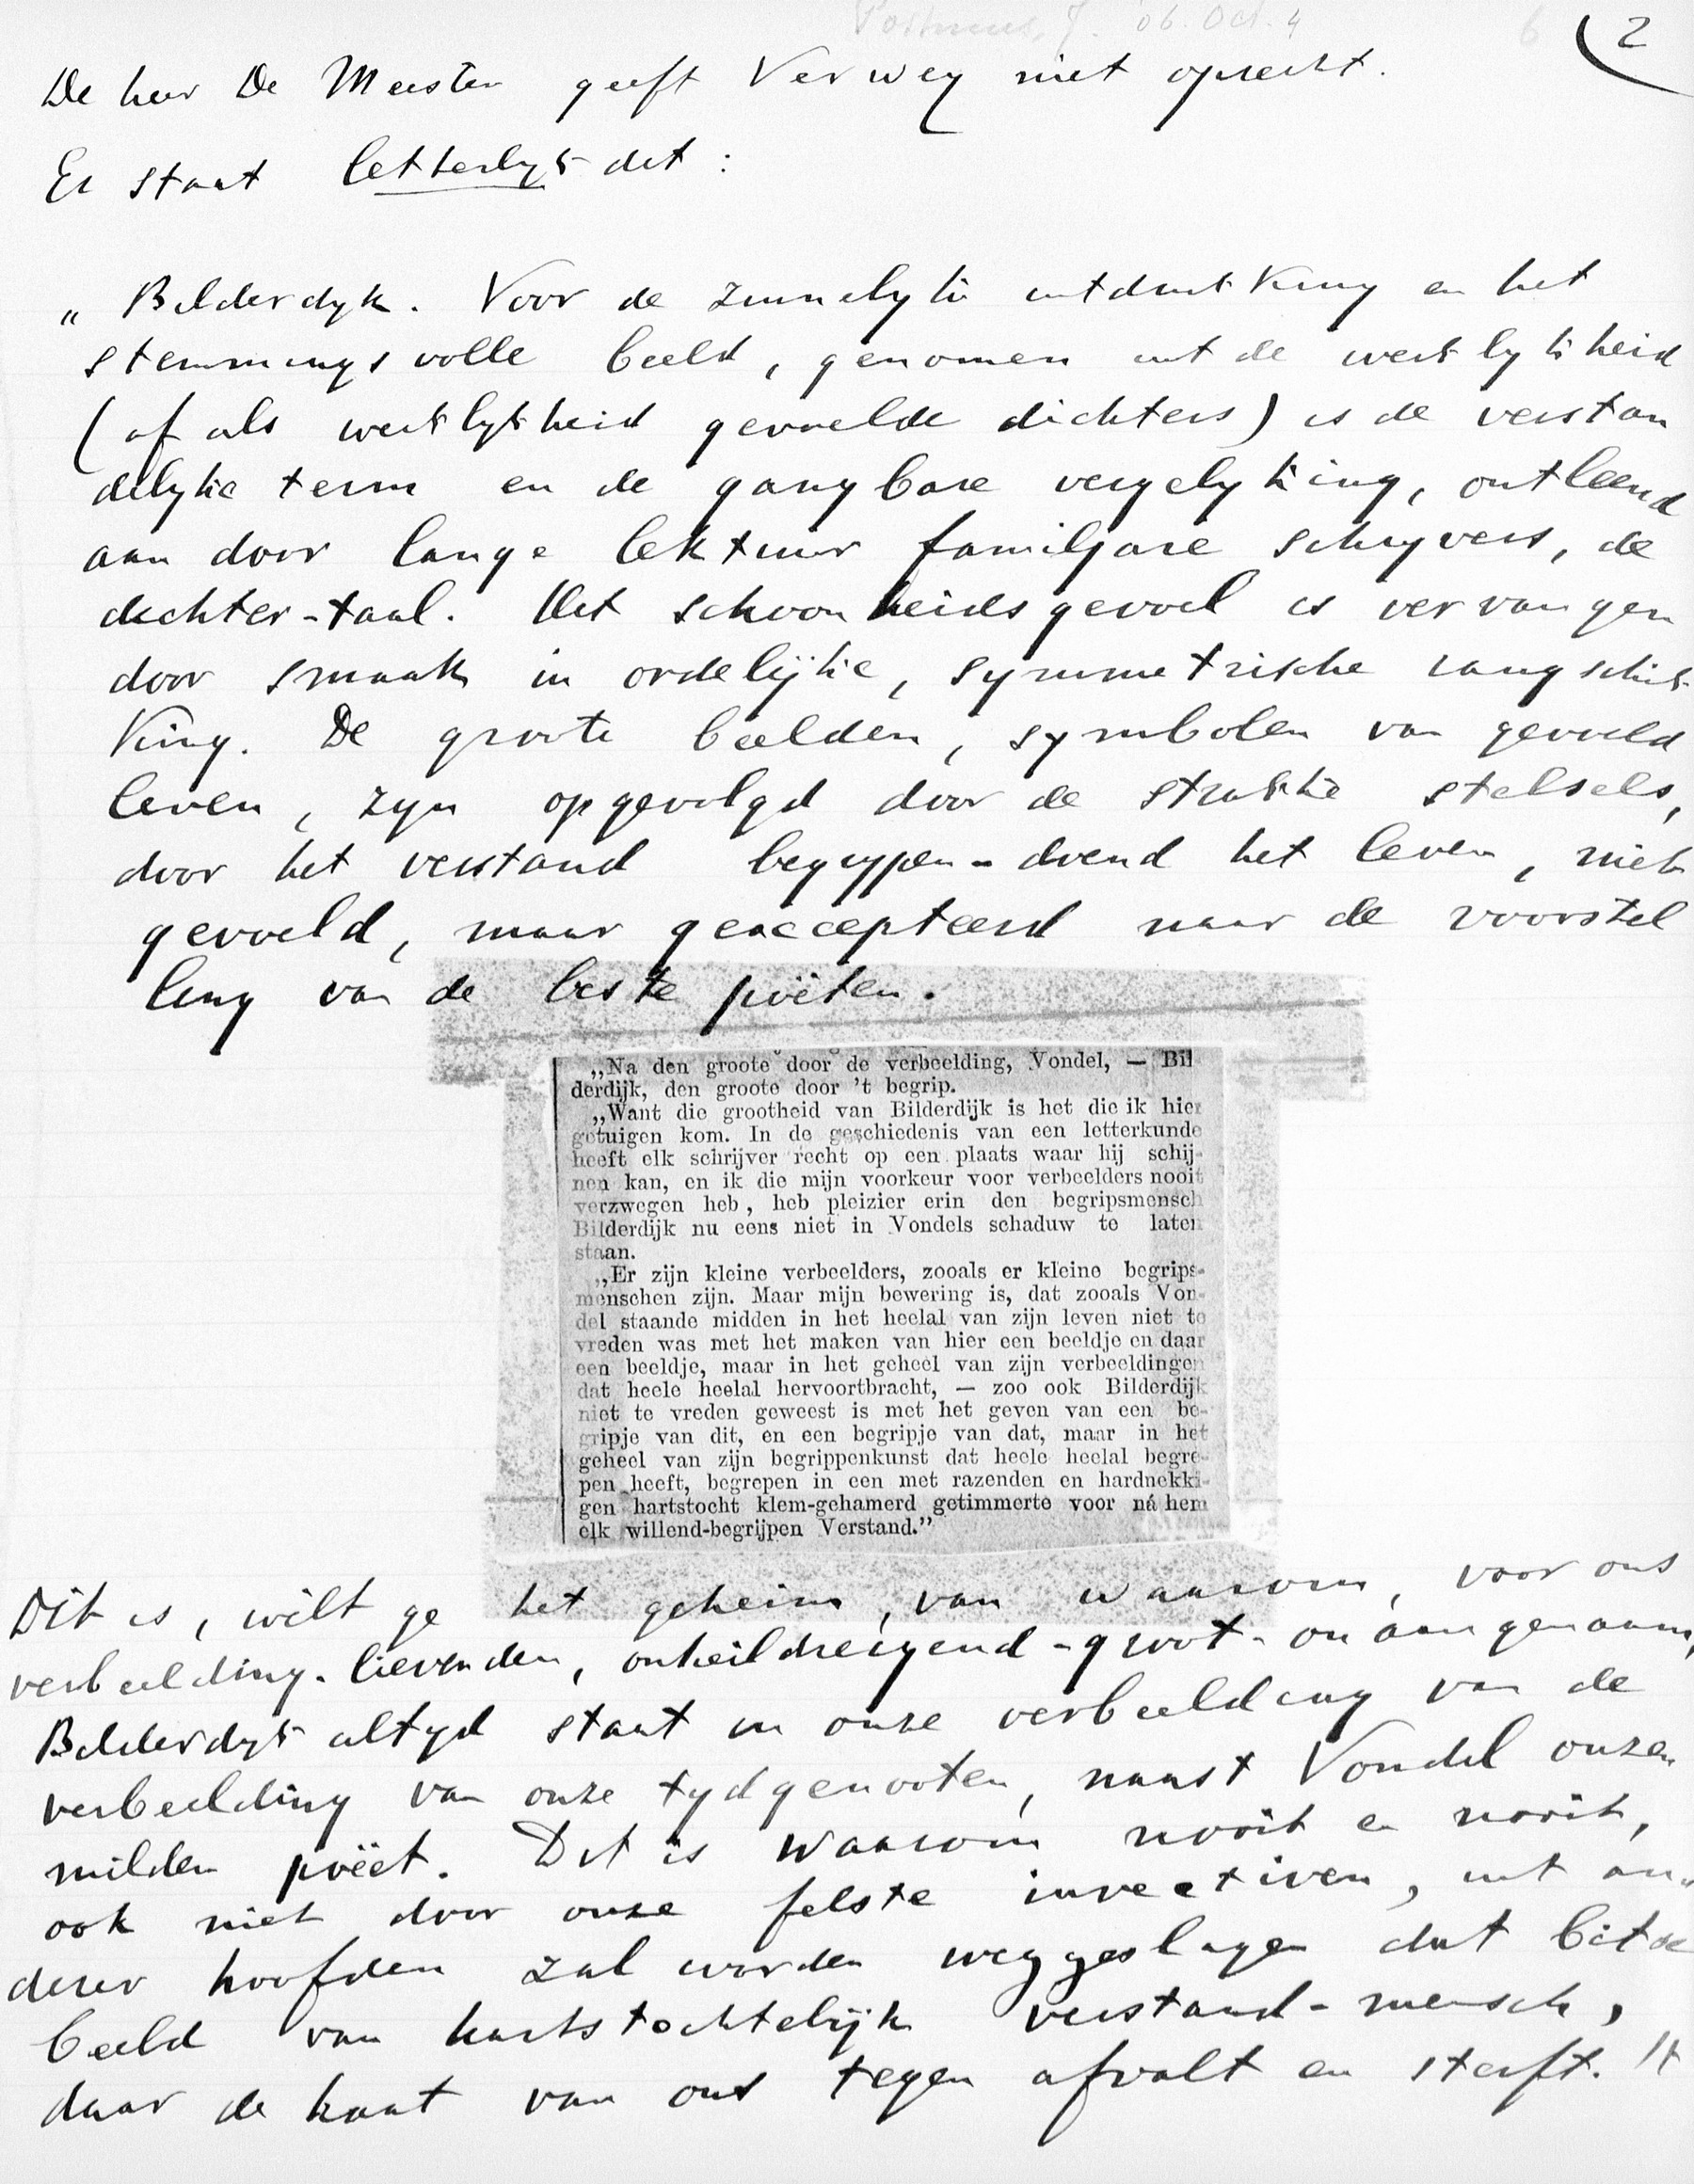 Postmus, J. '06. Oct. 4
6
2
De heer De Meester geeft Verwey niet oprecht.
Er staat letterlyk dit :
„ Bilderdyk. Voor de zinnelyke uitdrukking en het
stemmingsvolle beeld, genomen uit de werklykheid
(of als werklykheid gevoelde dichters) is de verstan
delyke term en de gangbare vergelyking, ontleend
aan door lange lektuur familjare schryvers, de
dichter-taal. Het schoonheidsgevoel is vervangen
door smaak in ordelijke, symmetrische rangschik-
king. De groote beelden, symbolen van gevoeld
leven, zyn opgevolgd door de strakke stelsels,
door het verstand begrypen-doend het leven, niet
gevoeld, maar geaccepteerd naar de voorstel
ling van de beste poëten.
„Na den groote door de verbeelding, Vondel, — Bil
derdijk, den groote door 't begrip.
„Want die grootheid van Bilderdijk is het die ik hier
getuigen kom. In de geschiedenis van een letterkunde
heeft elk schrijver recht op een plaats waar hij schij-
nen kan, en ik die mijn voorkeur voor verbeelders nooit
verzwegen heb, heb pleizier erin den begripsmensch
Bilderdijk nu eens niet in Vondels schaduw te laten
staan.
„Er zijn kleine verbeelders, zooals er kleine begrips-
menschen zijn. Maar mijn bewering is, dat zooals Von-
del staande midden in het heelal van zijn leven niet te
vreden was met het maken van hier een beeldje en daar
een beeldje, maar in het geheel van zijn verbeeldingen
dat heele heelal hervoortbracht, — zoo ook Bilderdijk
niet te vreden geweest is met het geven van een be-
gripje van dit, en een begripje van dat, maar in het
geheel van zijn begrippenkunst dat heele heelal begre-
pen heeft, begrepen in een met razenden en hardnekki-
gen hartstocht klem-gehamerd getimmerte voor ná hem
elk willend-begrijpen Verstand.”
Dit is, wilt ge het geheim, van waarom, voor ons
verbeelding-lievenden, onheildreigend-groot-onaangenaam,
Bilderdyk altyd staat in onze verbeelding van de
verbeelding van onze tydgenooten, naast Vondel onzen
milden poëet. Dit is waarom nooit en nooit,
ook niet door onze felste invectiven, uit an„
derer hoofden zal worden weggeslagen dat bitse
beeld van hartstochtelijk verstand-mensch,
daar de haat van ons tegen afvalt en sterft. "